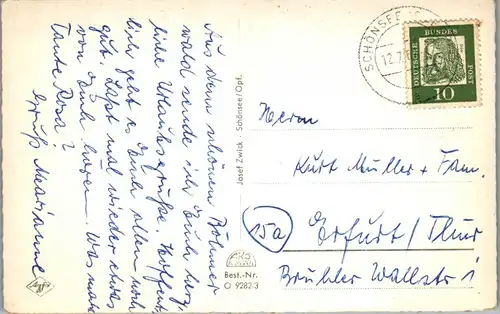 Aus dem schönen Böhmer
wald sende ich Euch herz
liche Urlaubsgrüße. Hoffent
lich geht es Euch allen noch
gut. Laßt mal wieder etwas
von Euch hören. Was macht
Tante Rosa?
Gruß Marianne
Josef Zwick Schönsee/Opf.
Best.-Nr.
O 9282/3
SCHÖNSEE
12.7.
DEUTSCHE BUNDES POST
10
Herrn
Kurt Müller + Fam.
(15a) Erfurt/Thür
Brühler Wallstr 1